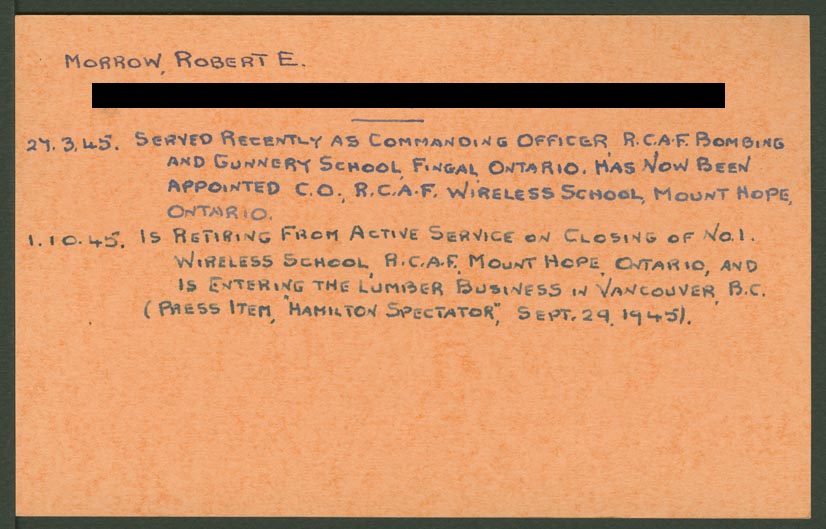 MORROW, ROBERT E.
27.3.45. SERVED RECENTLY AS COMMANDING OFFICER, R.C.A.F. BOMBING
AND GUNNERY SCHOOL, FINGAL, ONTARIO. HAS NOW BEEN
APPOINTED C.O., R.C.A.F. WIRELESS SCHOOL, MOUNT HOPE,
ONTARIO.
1.10.45. IS RETIRING FROM ACTIVE SERVICE ON CLOSING OF NO.1.
WIRELESS SCHOOL, R.C.A.F. MOUNT HOPE, ONTARIO, AND
IS ENTERING THE LUMBER BUSINESS IN VANCOUVER, B.C.
(PRESS ITEM, "HAMILTON SPECTATOR", SEPT. 29, 1945).